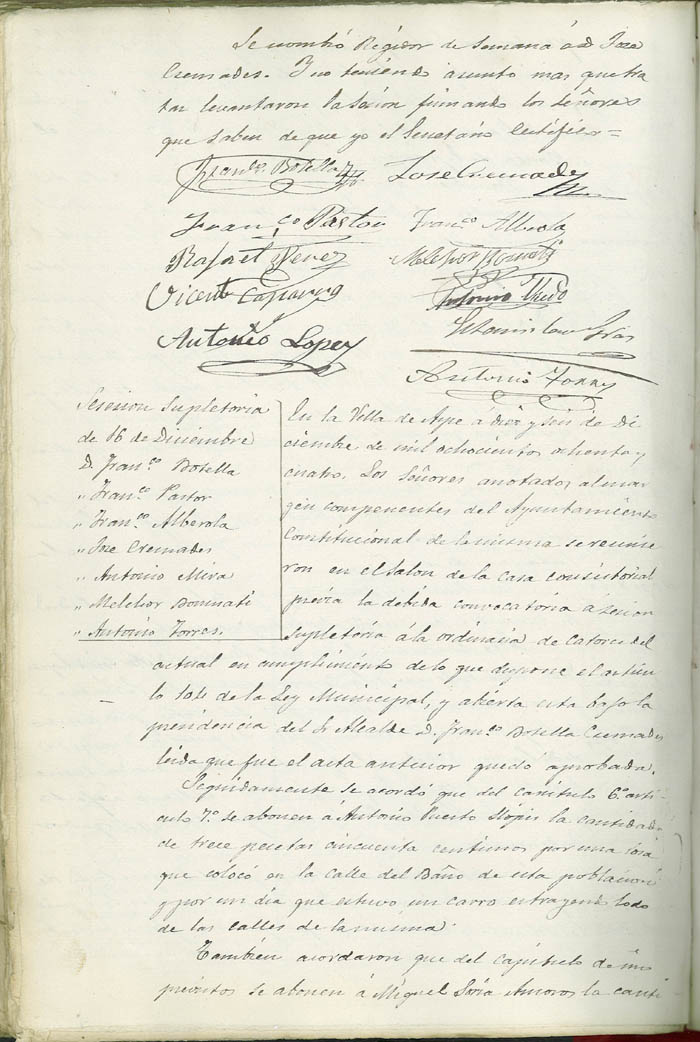 Se nombró Regidor de Semana á d. Jose
Cremades. Y no teniendo asunto mas que tra
tar levantaron la sesion firmando los señores
que saben de que yo el Secretario Certifico=
Franco. Botella Jose Cremades
Franco Pastor Franco. Alberola
Rafael Perez Melchor Domnati
Vicente Antonio
Antonio Lopez Estanislao
Antonio Torres
Sesion Supletoria
de 16 de Diciembre
D. Franco. Botella
" Franco. Pastor
" Franco. Alberola
" Jose Cremades
" Antonio Mira
" Melchor Domnati
" Antonio Torres.
En la Villa de Aspe á diez y seis de Di
ciembre de mil ochocientos ochenta y
cuatro. Los Señores anotados al mar
gen componentes del Ayuntamiento
Constitucional de la misma se reunie
ron en el salon de la casa consistorial
previa la debida convocatoria á sesion
supletoria á la ordinaria de catorce del
actual en cumplimiento de lo que dispone el artícu
lo 104 de la Ley Municipal, y abierta esta bajo la
presidencia del Sr Alcalde D. Franco. Botella Cremades
leida que fue el acta anterior quedó aprobada.
Seguidamente se acordó que del capitulo 6º arti-
culo 7º se abonen á Antonio Puerto Mópis la cantidad
de trece pesetas cincuenta centimos por una losa
que colocó en la calle del Baño de esta poblacion
y por un dia que estuvo un carro estrayendo lodo
de las calles de la misma.
También acordaron que del capítulo de im
previstos se abonen á Miguel Soria Amoros la canti-